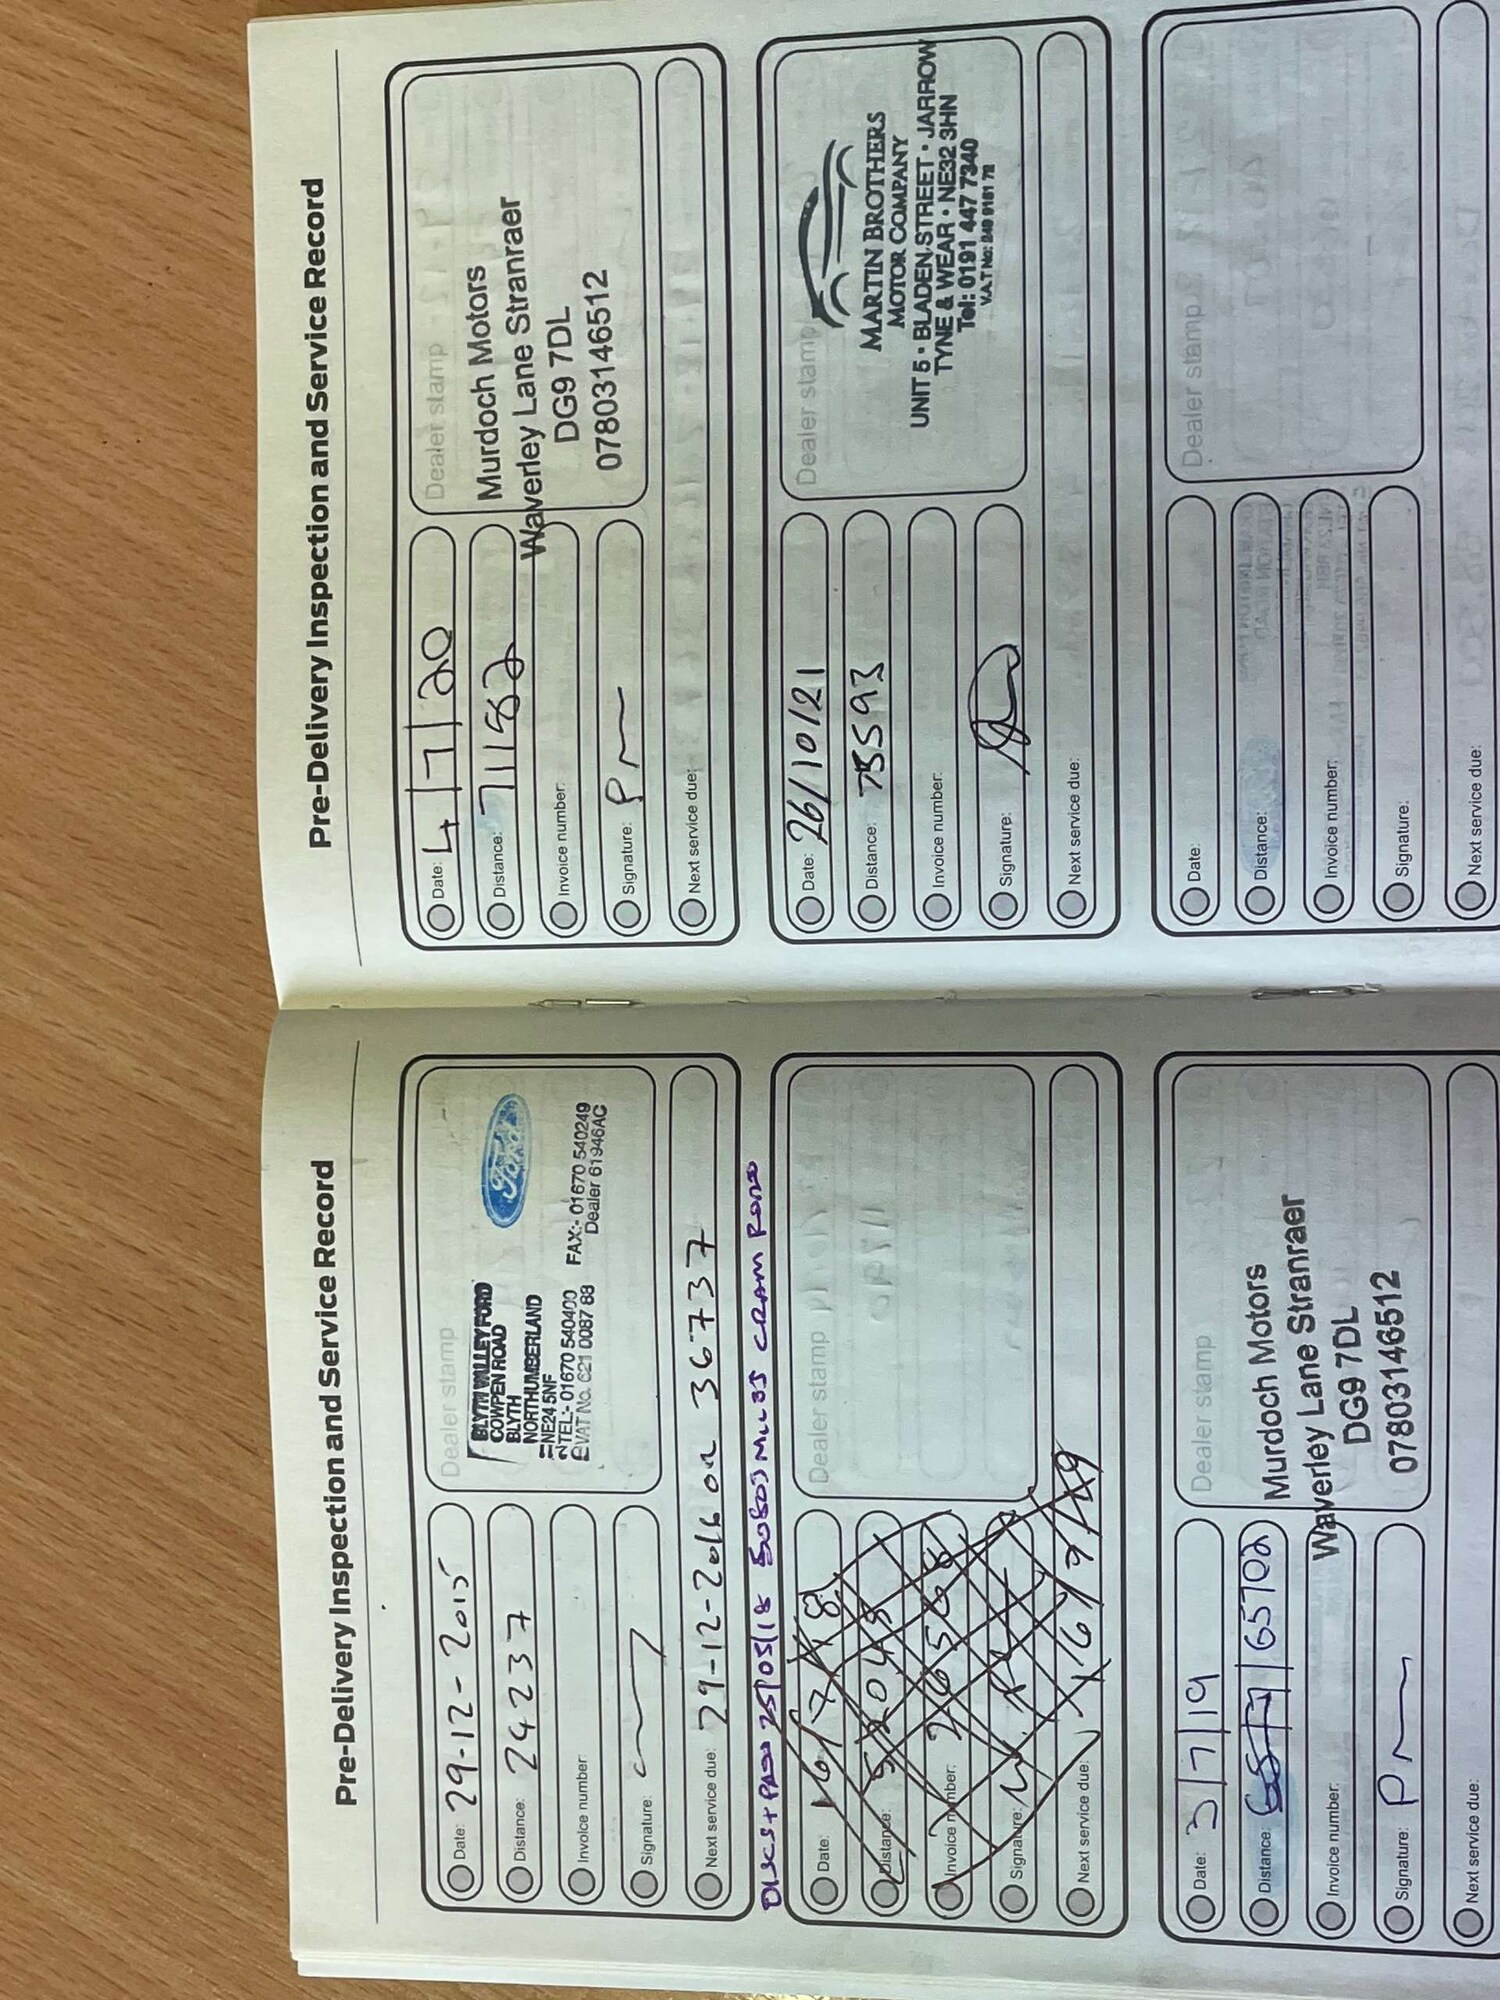 Pre-Delivery Inspection and Service Record
Date: 29-12-2015
Distance: 24237
Invoice number:
Signature:
Next service due: 29-12-2016 or 36737
Dealer stamp
BLYTH VALLEY FORD
COWPEN ROAD
BLYTH
NORTHUMBERLAND
NE24 5NF
TEL:- 01670 540400 FAX:- 01670 540249
VAT No. 621 0087 88 Dealer 61946AC
Ford
DISCS + PADS 25/05/18 50803 MILES
Date: 16/7/18
Distance:
Invoice number:
Signature:
Next service due: 16/7/19
Dealer stamp
Date: 3/7/19
Distance: 65702
Invoice number:
Signature:
Next service due:
Dealer stamp
Murdoch Motors
Waverley Lane Stranraer
DG9 7DL
07803146512
Pre-Delivery Inspection and Service Record
Date: 4/7/20
Distance: 71182
Invoice number:
Signature:
Next service due:
Dealer stamp
Murdoch Motors
Waverley Lane Stranraer
DG9 7DL
07803146512
Date: 26/10/21
Distance: 75593
Invoice number:
Signature:
Next service due:
Dealer stamp
MARTIN BROTHERS
MOTOR COMPANY
UNIT 5 • BLADEN STREET • JARROW
TYNE & WEAR • NE32 3HN
Tel: 0191 447 7340
V.A.T No: 249 9181 72
Date:
Distance:
Invoice number:
Signature:
Next service due:
Dealer stamp